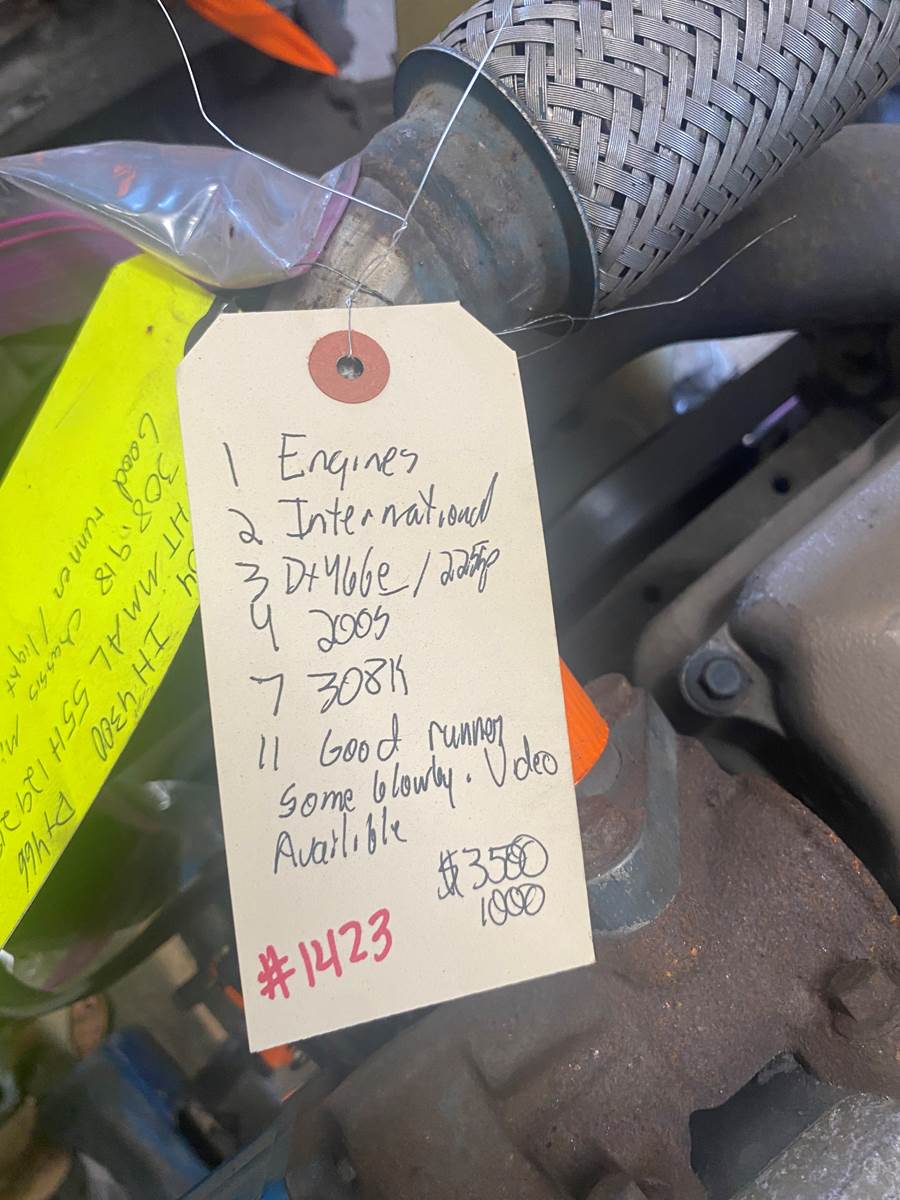 1 Engines
2 International
3 Dt466e / 225hp
4 2005
7 308K
11 Good runner
Some blowby. Video
Available
$3500
1000
#1423
IH 4300 Dt466
HT/MMAL 55H129
308,918 chassis
Good runner / light